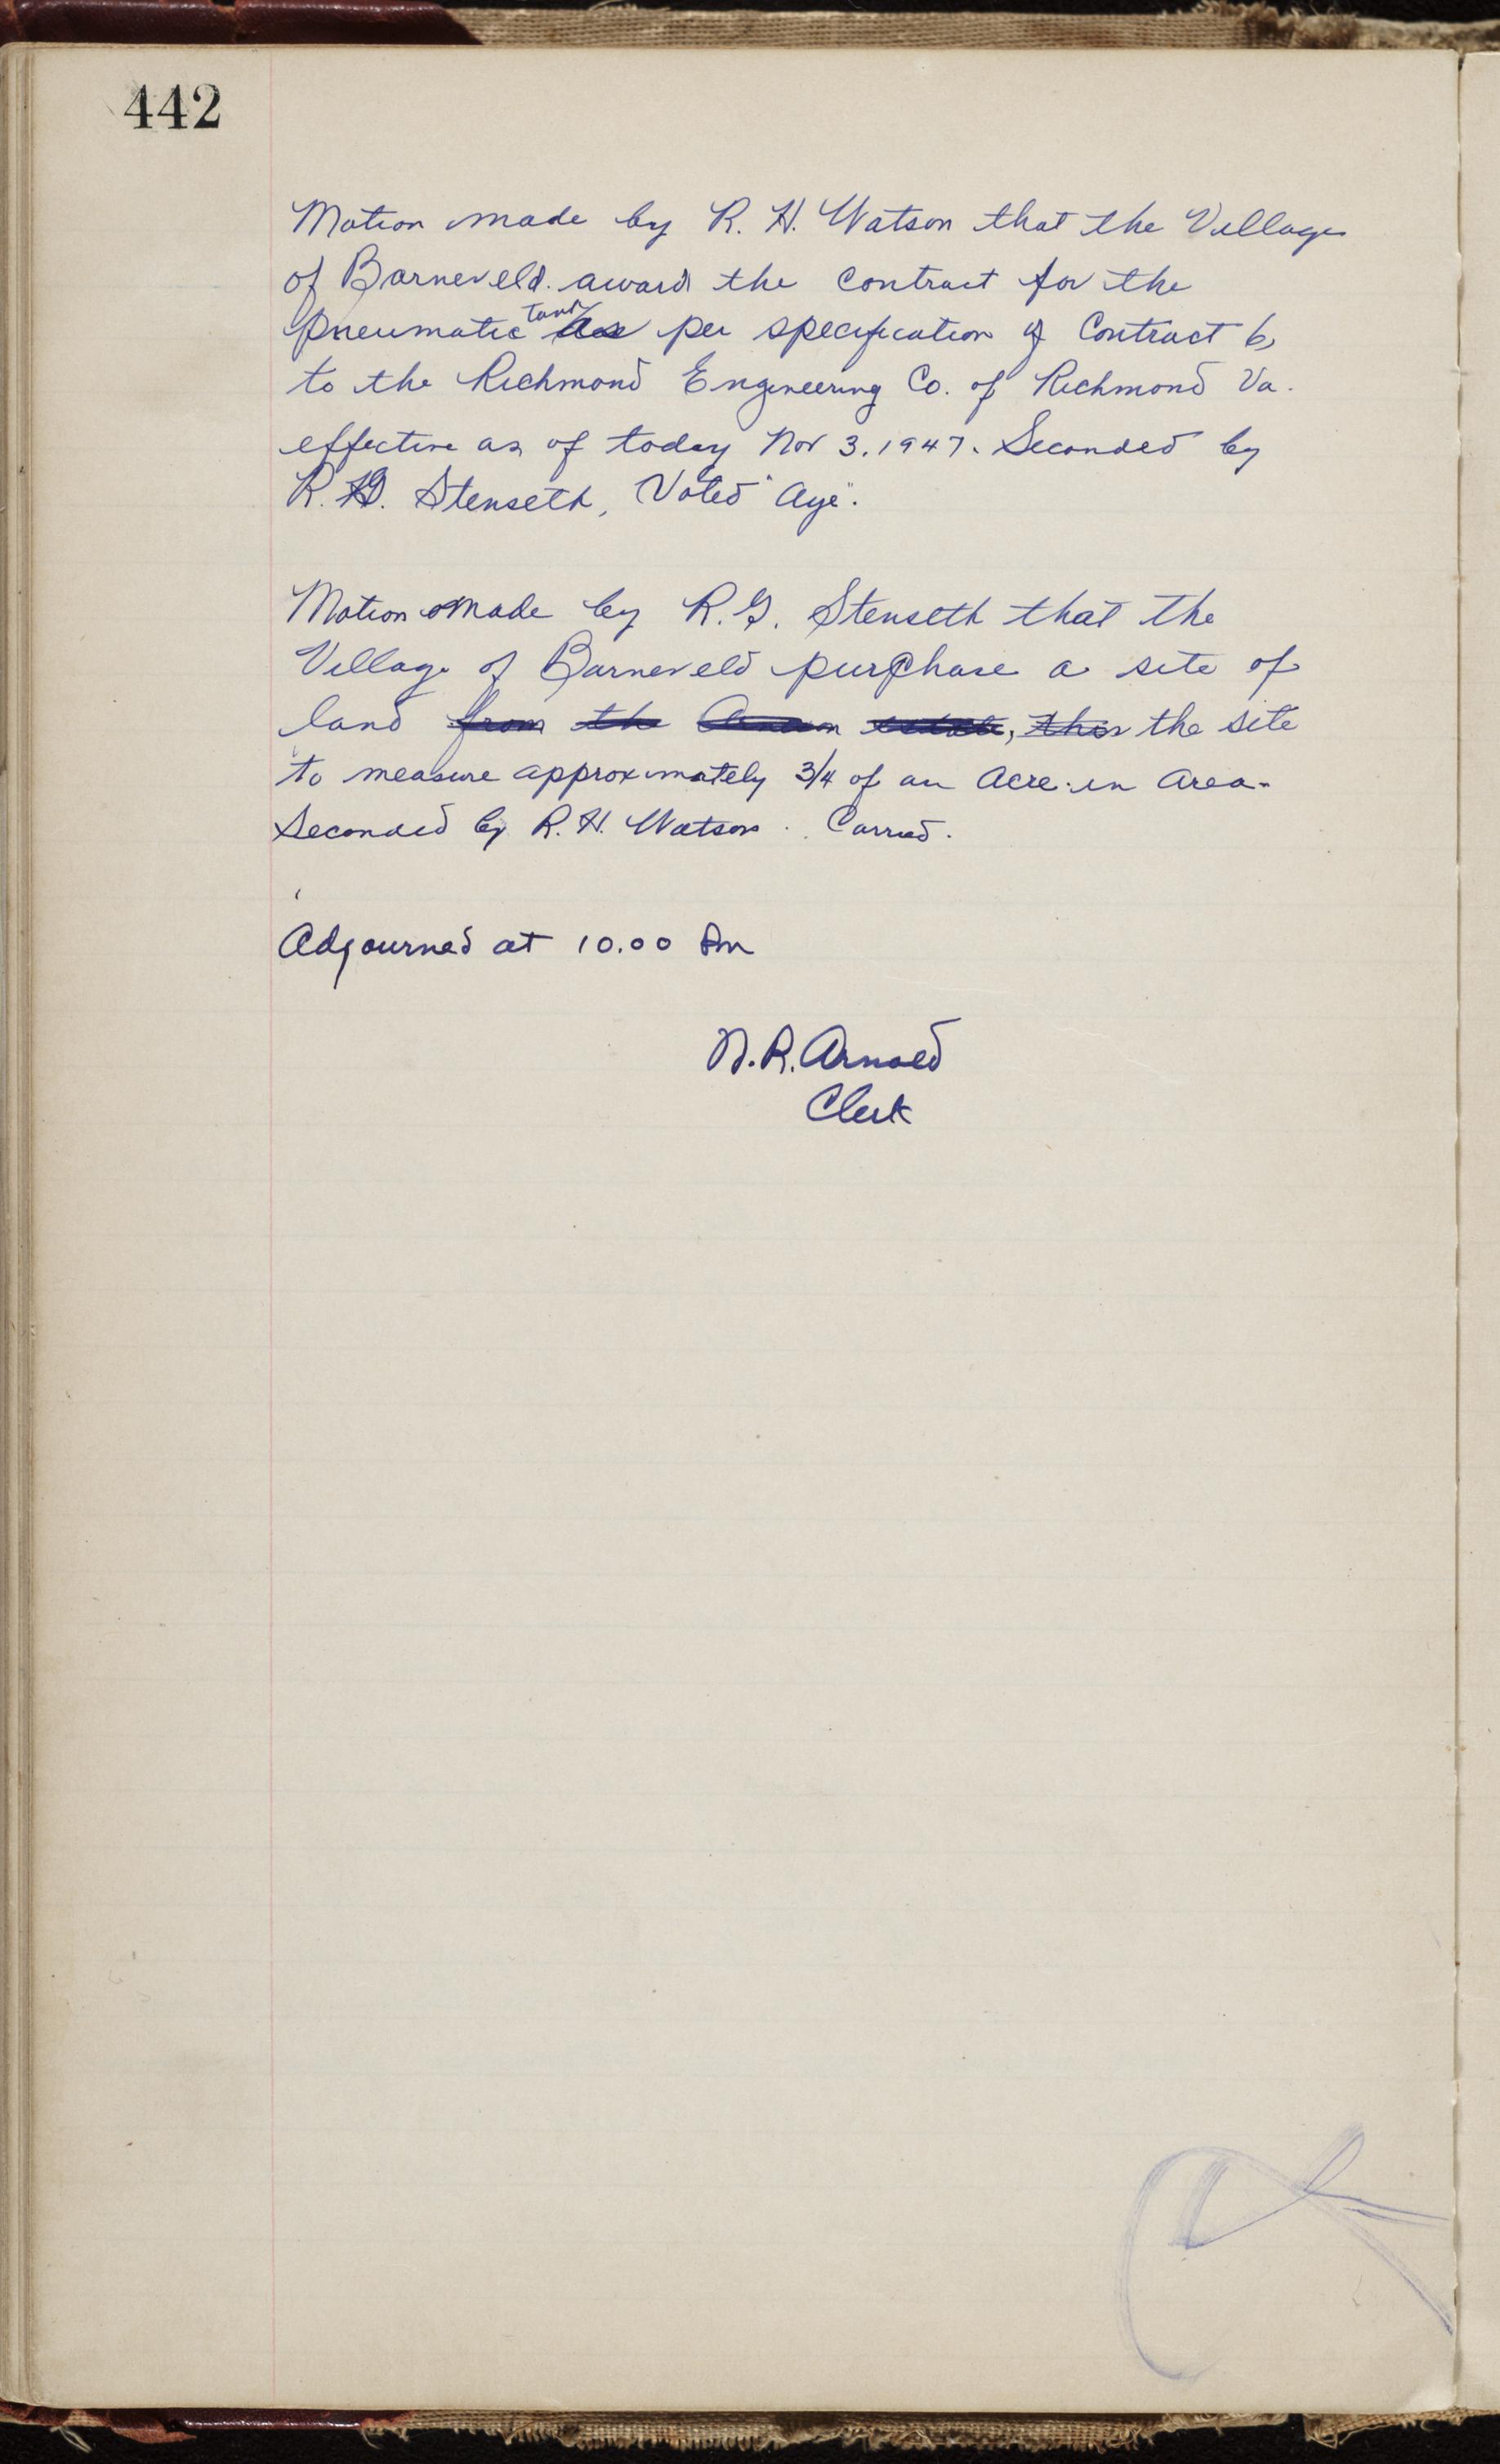 442
Motion made by R. H. Watson that the Village
of Barneveld. award the contract for the
Tank
pneumatic as per specification of Contract 6,
to the Richmond Engineering Co. of Richmond Va.
effective as of today Nov 3, 1947. Seconded by
R. G. Stenseth, Voted "aye".
Motion made by R. G. Stenseth that the
Village of Barneveld purchase a site of
land from the estate, this the site
to measure approximately 3/4 of an acre in area.
Seconded by R. H. Watson. Carried.
Adjourned at 10.00 Pm
N. R. Arnold
Clerk